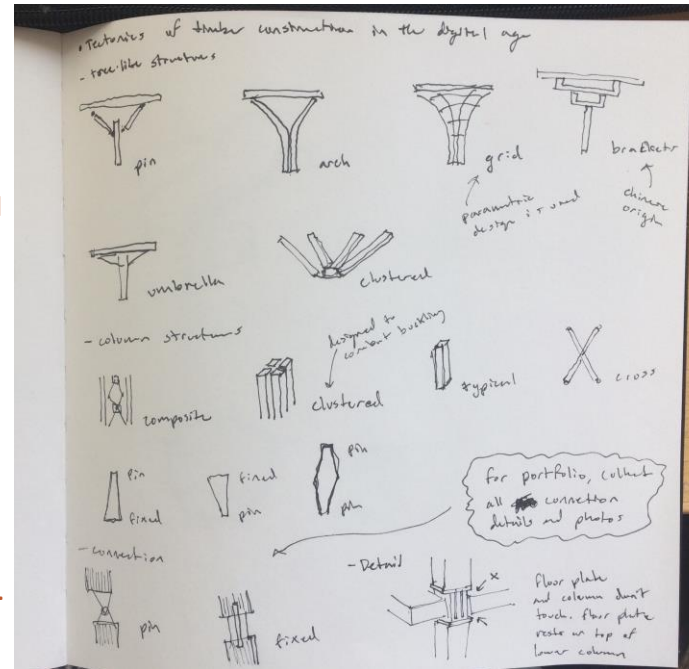 • Tectonics of timber construction in the digital age
- tree-like structures
pin
arch
grid
brackets
parametric
design is used
chinese
origin
umbrella
clustered
- column structures
designed to
combat buckling
composite
clustered
typical
cross
pin
fixed
fixed
pin
pin
pin
for portfolio, collect
all connection
details and photos
- connection
- Detail
pin
fixed
x
floor plate
and column don't
touch. floor plate
rests on top of
lower column